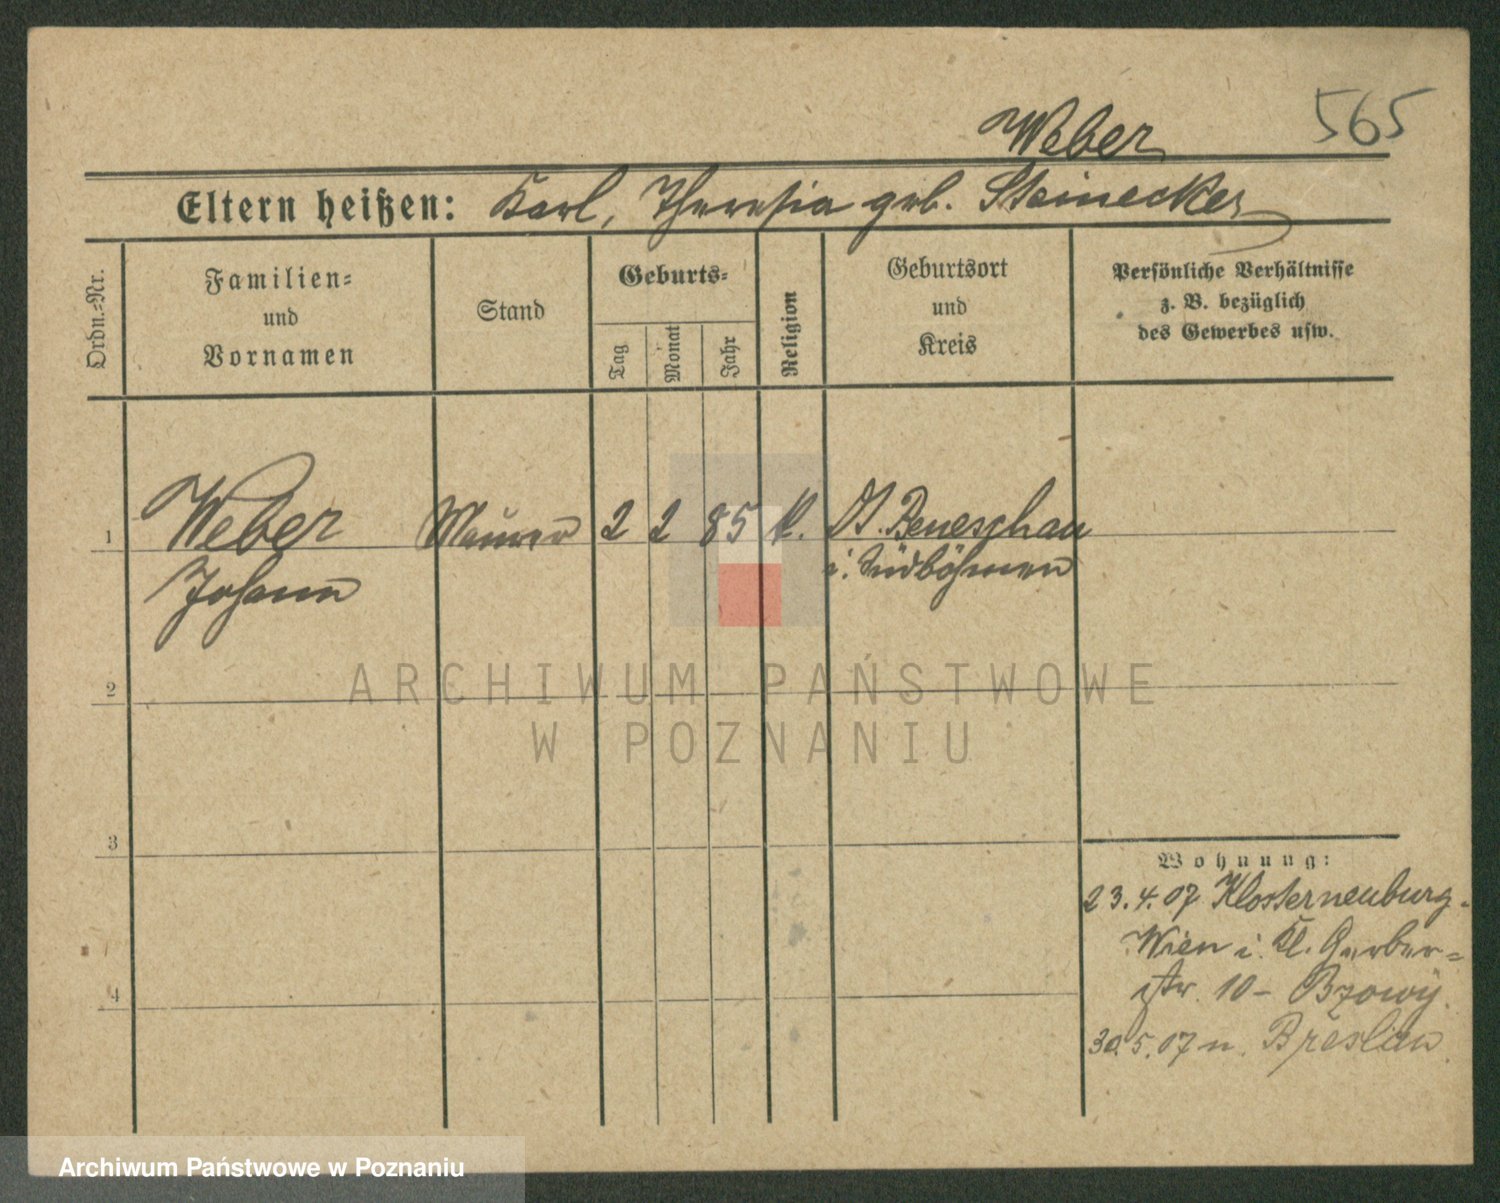 565
Weber
Eltern heißen: Karl, Theresia geb. Steinecker
Ordn.=Nr.
Familien=
und
Vornamen
Stand
Geburts=
Tag
Monat
Jahr
Religion
Geburtsort
und
Kreis
Persönliche Verhältnisse
z. B. bezüglich
des Gewerbes usw.
1
Weber Maurer 2 2 85 k. Dt. Beneschau
Johann
i. Südböhmen
2
ARCHIWUM PAŃSTWOWE
W POZNANIU
3
Wohnung:
23.4.07 Klosterneuburg-
Wien i. Kl. Gerber=
str. 10 - Bzowy.
4
30.5.07 n. Breslau
Archiwum Państwowe w Poznaniu